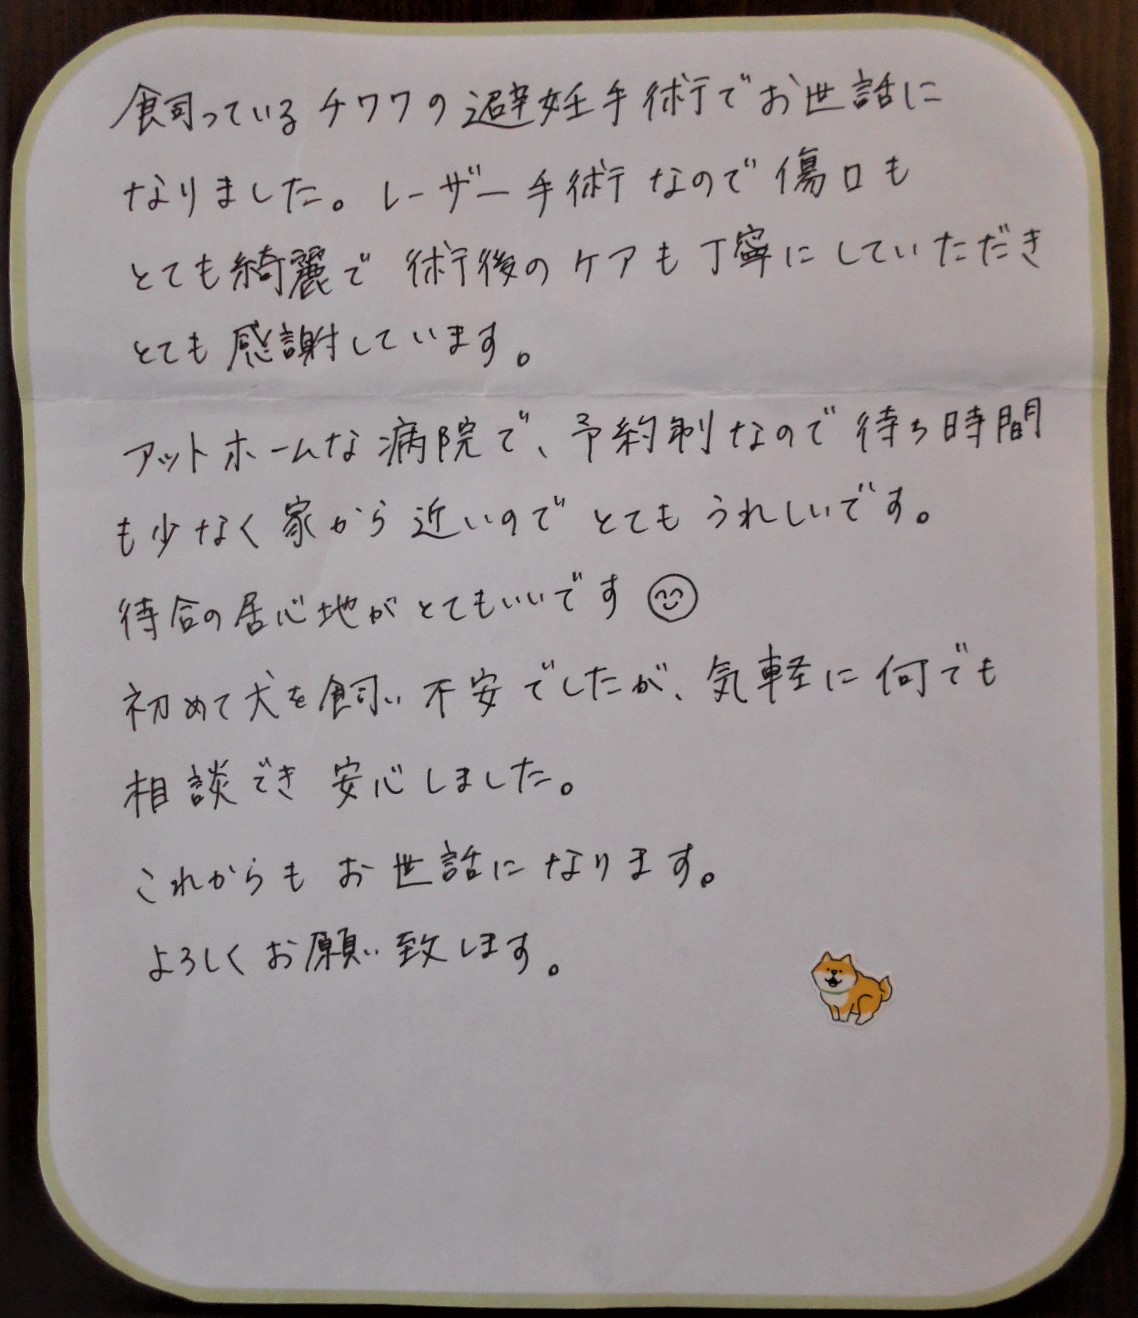 飼っているチワワの避妊手術でお世話に
なりました。レーザー手術なので傷口も
とても綺麗で 術後のケアも丁寧にしていただき
とても感謝しています。
アットホームな病院で、予約制なので待ち時間
も少なく家から近いのでとてもうれしいです。
待合の居心地がとてもいいです
初めて犬を飼い不安でしたが、気軽に何でも
相談でき安心しました。
これからもお世話になります。
よろしくお願い致します。